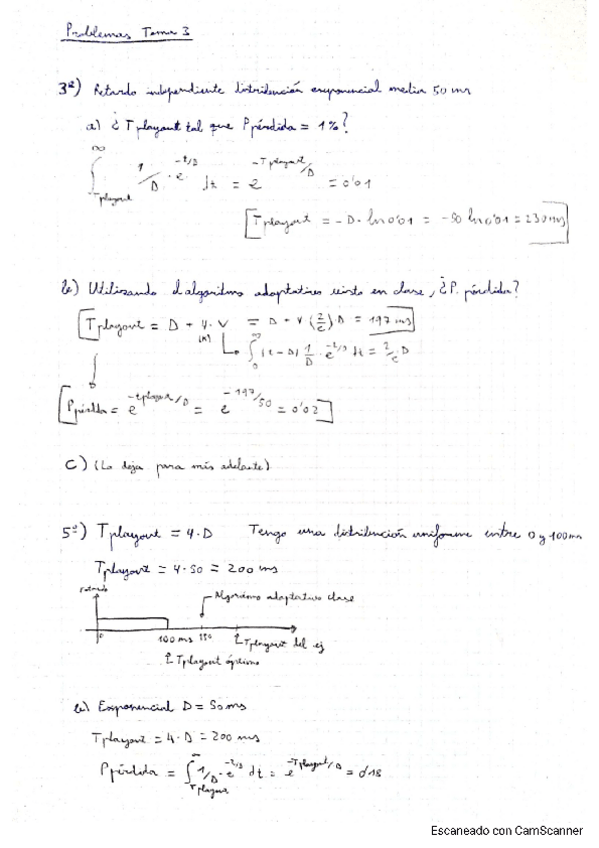 Problemas Tema 3
3º) Retardo independiente distribución exponencial media 50 ms
a) ¿Tplayout tal que Ppérdida = 1%?
∫_Tplayout^∞ 1/D · e^(-t/D) dt = e^(-Tplayout/D) = 0'01
[Tplayout = -D · ln 0'01 = -50 ln 0'01 = 230 ms]
b) Utilizando el algoritmo adaptativo visto en clase, ¿P. pérdida?
[Tplayout = D + 4·V = D + 4 (2/e) D = 197 ms]
∫_0^∞ |t-D| 1/D · e^(-t/D) dt = 2/e · D
[Ppérdida = e^(-tplayout/D) = e^(-197/50) = 0'02]
C) (Lo deja para más adelante)
5º) Tplayout = 4·D Tengo una distribución uniforme entre 0 y 100ms
Tplayout = 4·50 = 200 ms
Algoritmo adaptativo clase
0 100 ms 150 Tplayout del ej
Tplayout óptimo
b) Exponencial D = 50ms
Tplayout = 4·D = 200 ms
Ppérdida = ∫_Tplayout^∞ 1/D · e^(-t/D) dt = e^(-Tplayout/D) = 0'18
Escaneado con CamScanner